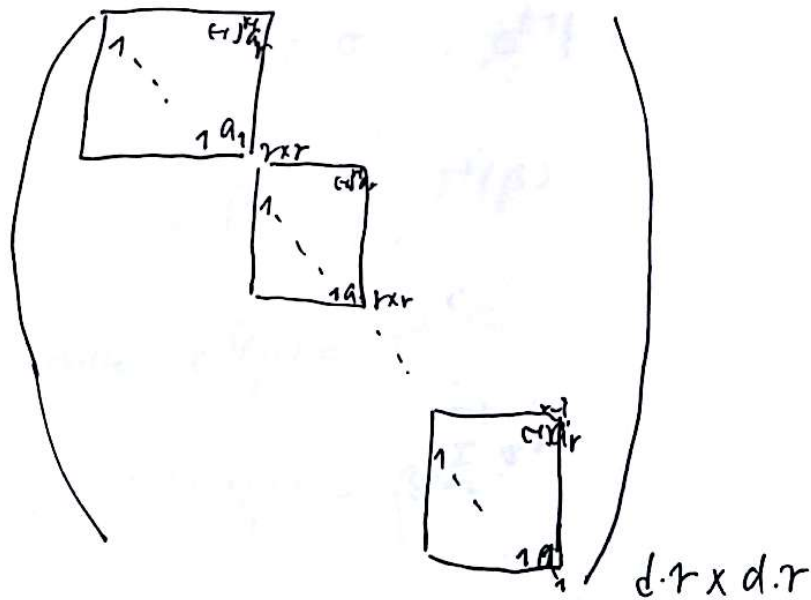 (-1)^{r-1} a_r
1
1 a_1
r×r
(-1)^{r-1} a_r
1
1 a_1 r×r
(-1)^{r-1} a_r
1
1 a_1
d.r × d.r